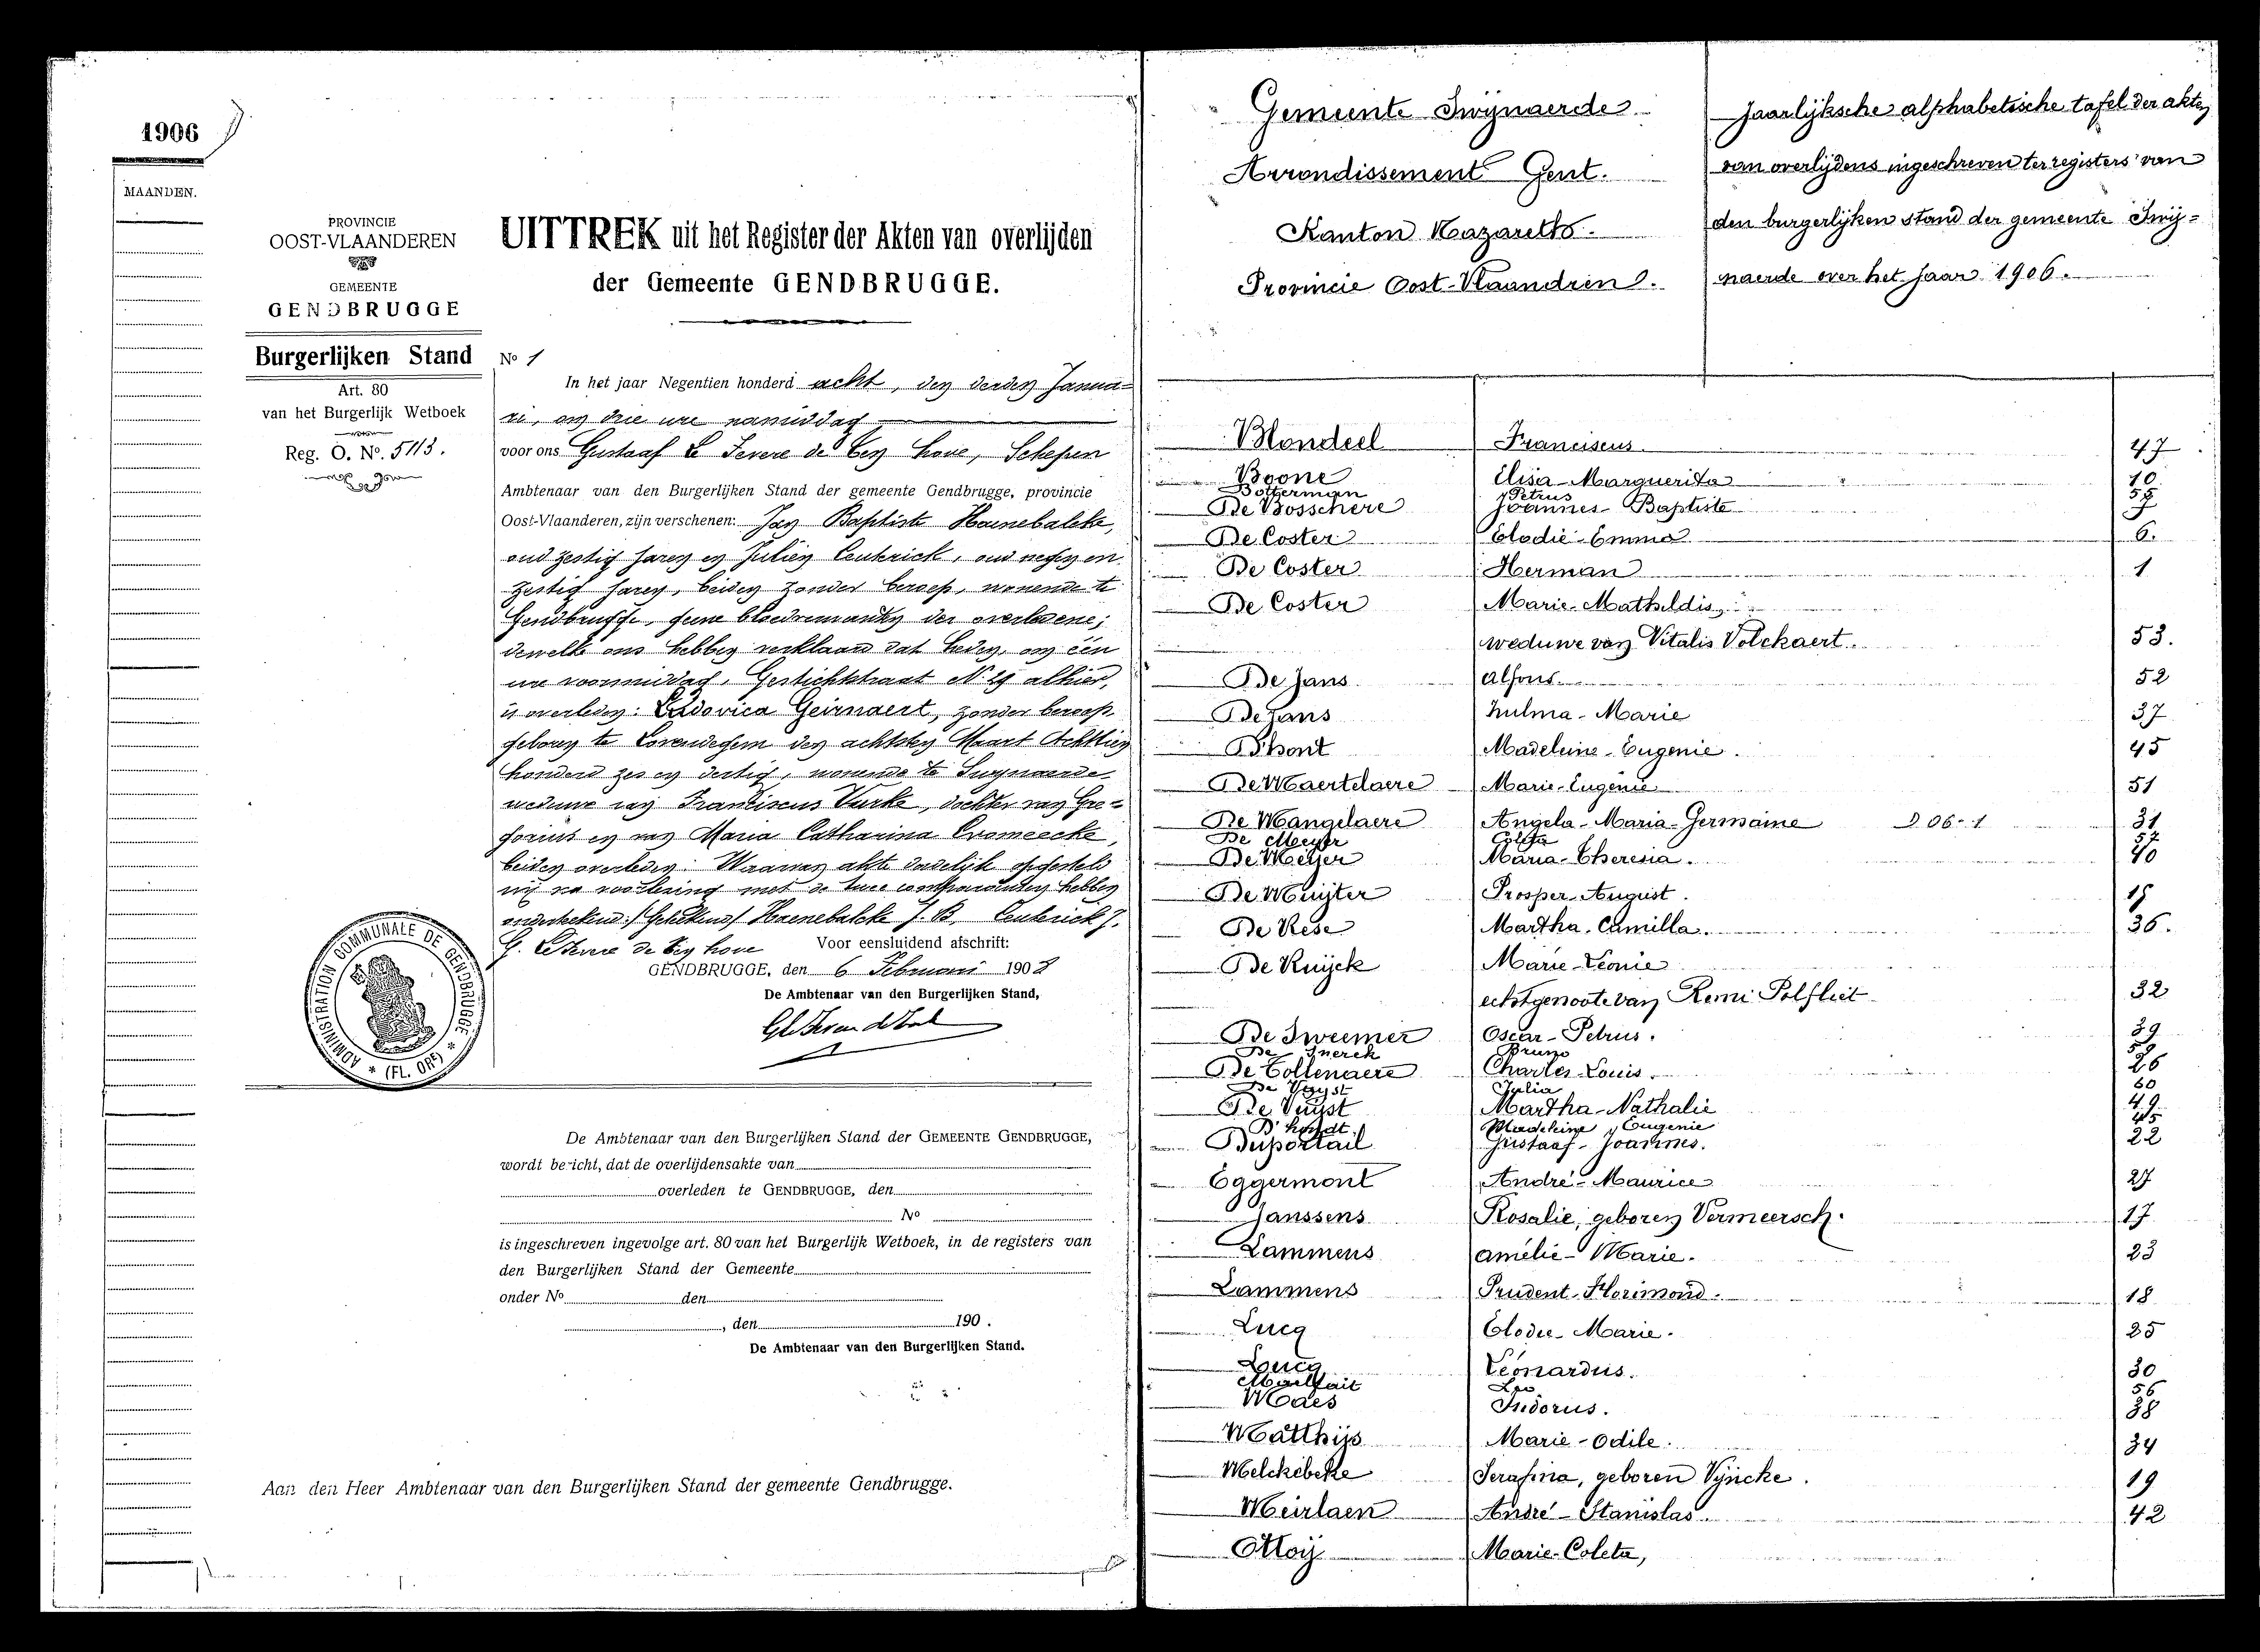 1906
MAANDEN.
PROVINCIE
OOST-VLAANDEREN
GEMEENTE
GENDBRUGGE
Burgerlijken Stand
Art. 80
van het Burgerlijk Wetboek
Reg. O. No. 5113.
UITTREK uit het Register der Akten van overlijden
der Gemeente GENDBRUGGE.
No 1
In het jaar Negentien honderd acht, den derden Janua=
ri, om drie ure namiddag
voor ons Gustaaf Le Fevere de Ten Hove, Schepen
Ambtenaar van den Burgerlijken Stand der gemeente Gendbrugge, provincie
Oost-Vlaanderen, zijn verschenen: Jan Baptiste Haenebalcke,
oud zestig jaren en Julien Centrick, oud negen en
zestig jaren, beiden zonder beroep, wonende te
Gendbrugge, geene bloedverwanten der overledene;
dewelke ons hebben verklaard dat heden, om één
ure voormiddag, Gestichtstraat N. 29 alhier,
is overleden: Ludovica Geirnaert, zonder beroep
geboren te Lovendegem den achtsten Maart Achttien
honderd zes en dertig, wonende te Swynaerde
weduwe van Franciscus Vurke, dochter van Gre=
gorius en van Maria Catharina Cromeecke,
beiden overleden. Waarvan akte dadelijk opgesteld
onderteekend /Geteekend/ Haenebalcke J. B. Centrick J.
G. Le Fevere de Ten hove
Voor eensluidend afschrift:
GENDBRUGGE, den 6 Februari 1908
De Ambtenaar van den Burgerlijken Stand,
ADMINISTRATION COMMUNALE DE GENDBRUGGE * (FL. ORE) *
De Ambtenaar van den Burgerlijken Stand der GEMEENTE GENDBRUGGE,
wordt bericht, dat de overlijdensakte van
overleden te GENDBRUGGE, den
No
is ingeschreven ingevolge art. 80 van het Burgerlijk Wetboek, in de registers van
den Burgerlijken Stand der Gemeente
onder No den
, den 190 .
De Ambtenaar van den Burgerlijken Stand.
Aan den Heer Ambtenaar van den Burgerlijken Stand der gemeente Gendbrugge.
Gemeente Swijnaerde
Arrondissement Gent.
Kanton Nazareth.
Provincie Oost-Vlaandren.
Jaarlijksche alphabetische tafel der akten
van overlijdens ingeschreven ter registers van
den burgerlijken stand der gemeente Swij=
naerde over het jaar 1906.
Blondeel Franciscus 47
Boone Elisa-Marguerita 10
Botterman Petrus
De Bosschere Joannes-Baptiste 7
De Coster Elodie-Emma 6.
De Coster Herman 1
De Coster Marie-Mathildis,
weduwe van Vitalis Volckaert. 53.
De Jans Alfons 52
De Jans Zulma-Marie 37
D'hont Madeleine-Eugenie. 45
De Maertelaere Marie-Eugenie 51
De Mangelaere Angela-Maria-Germaine D 06-1 31
De Meyer Coleta 57
De Meijer Maria-Theresia. 40
De Muijter Prosper-August. 15
De Rese Martha-Camilla. 36.
De Ruijck Marie-Leonie
echtgenoote van Remi Polfliet 32
De Sweemer Oscar-Petrus. 39
De Snerck Bruno 59
De Tollenaere Charles-Louis. 26
De Vuyst Julia 60
De Vuijst Martha-Nathalie 49
D'hondt Madeleine Eugenie 45
Duportail Gustaaf-Joannes. 22
Eggermont André-Maurice 27
Janssens Rosalie, geboren Vermeersch. 17
Lammens Amélie-Marie. 23
Lammens Prudent-Florimond. 18
Lucq Elodie-Marie. 25
Lucq Léonardus. 30
Malfait Leo 56
Maes Isidorus. 38
Matthijs Marie-Odile. 34
Melckebeke Serafina, geboren Vijncke. 19
Meirlaen André-Stanislas. 42
Moij Marie-Coleta,